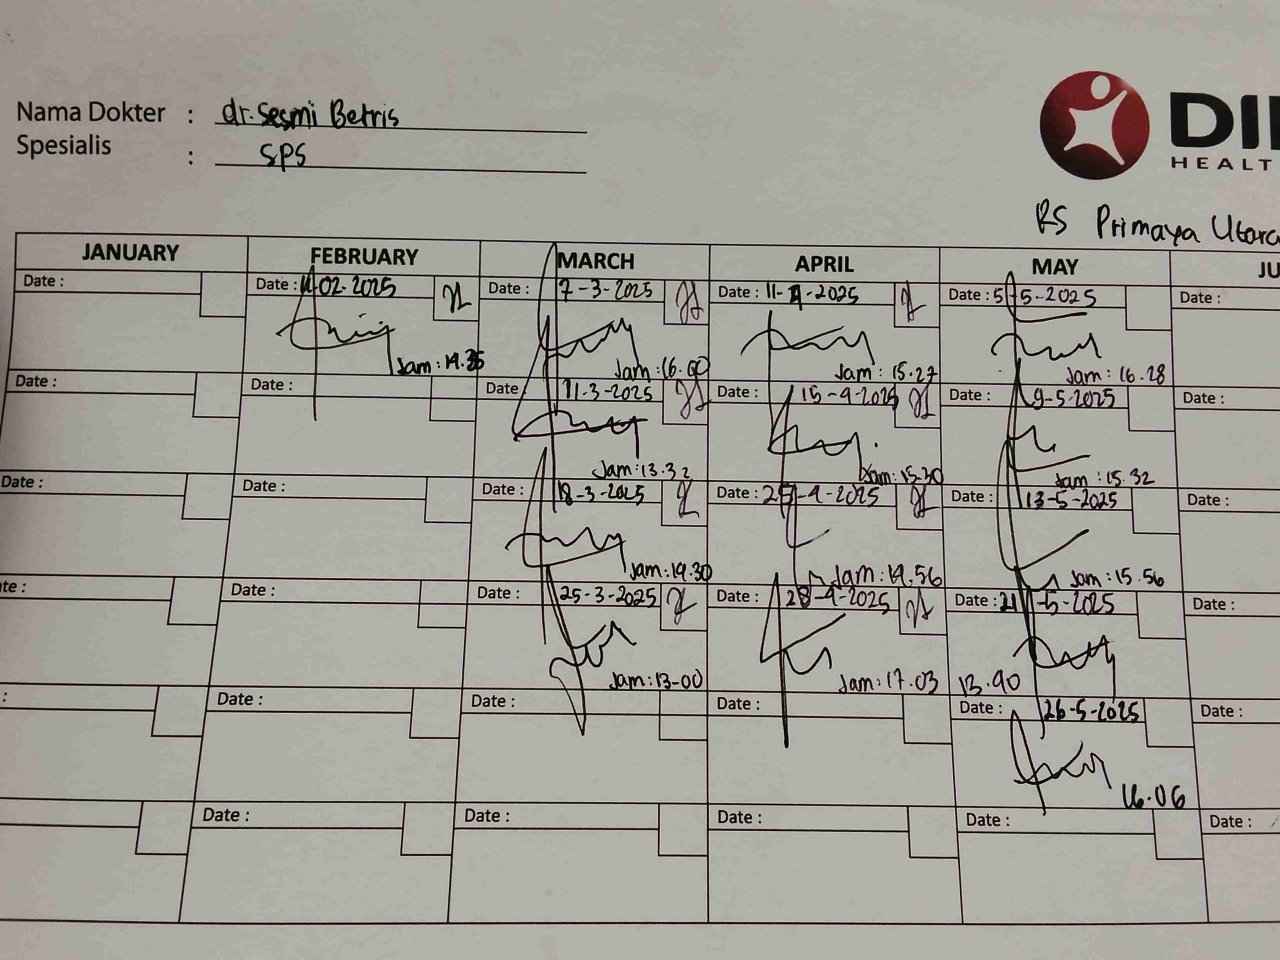 Nama Dokter : dr. Sesmi Betris
Spesialis : SPS
HEALT
RS Primaya Utara
JANUARY FEBRUARY MARCH APRIL MAY JU
Date : Date : 11-02-2025 Date : 7-3-2025 Date : 11-4-2025 Date : 5-5-2025 Date :
Jam: 14.35 Jam: 16.00 Jam: 15.27 Jam: 16.28
Date : Date : Date : 11-3-2025 Date : 15-4-2025 Date : 9-5-2025 Date :
Jam: 13.32 Jam: 15.30 Jam: 15.32
Date : Date : Date : 18-3-2025 Date : 25-4-2025 Date : 13-5-2025 Date :
Jam: 14.30 Jam: 14.56 Jam: 15.56
Date : Date : 25-3-2025 Date : 28-4-2025 Date : 21-5-2025 Date :
Jam: 13-00 Jam: 17.03 13.40
Date : Date : Date : Date : 26-5-2025 Date :
16.06
Date : Date : Date : Date : Date :